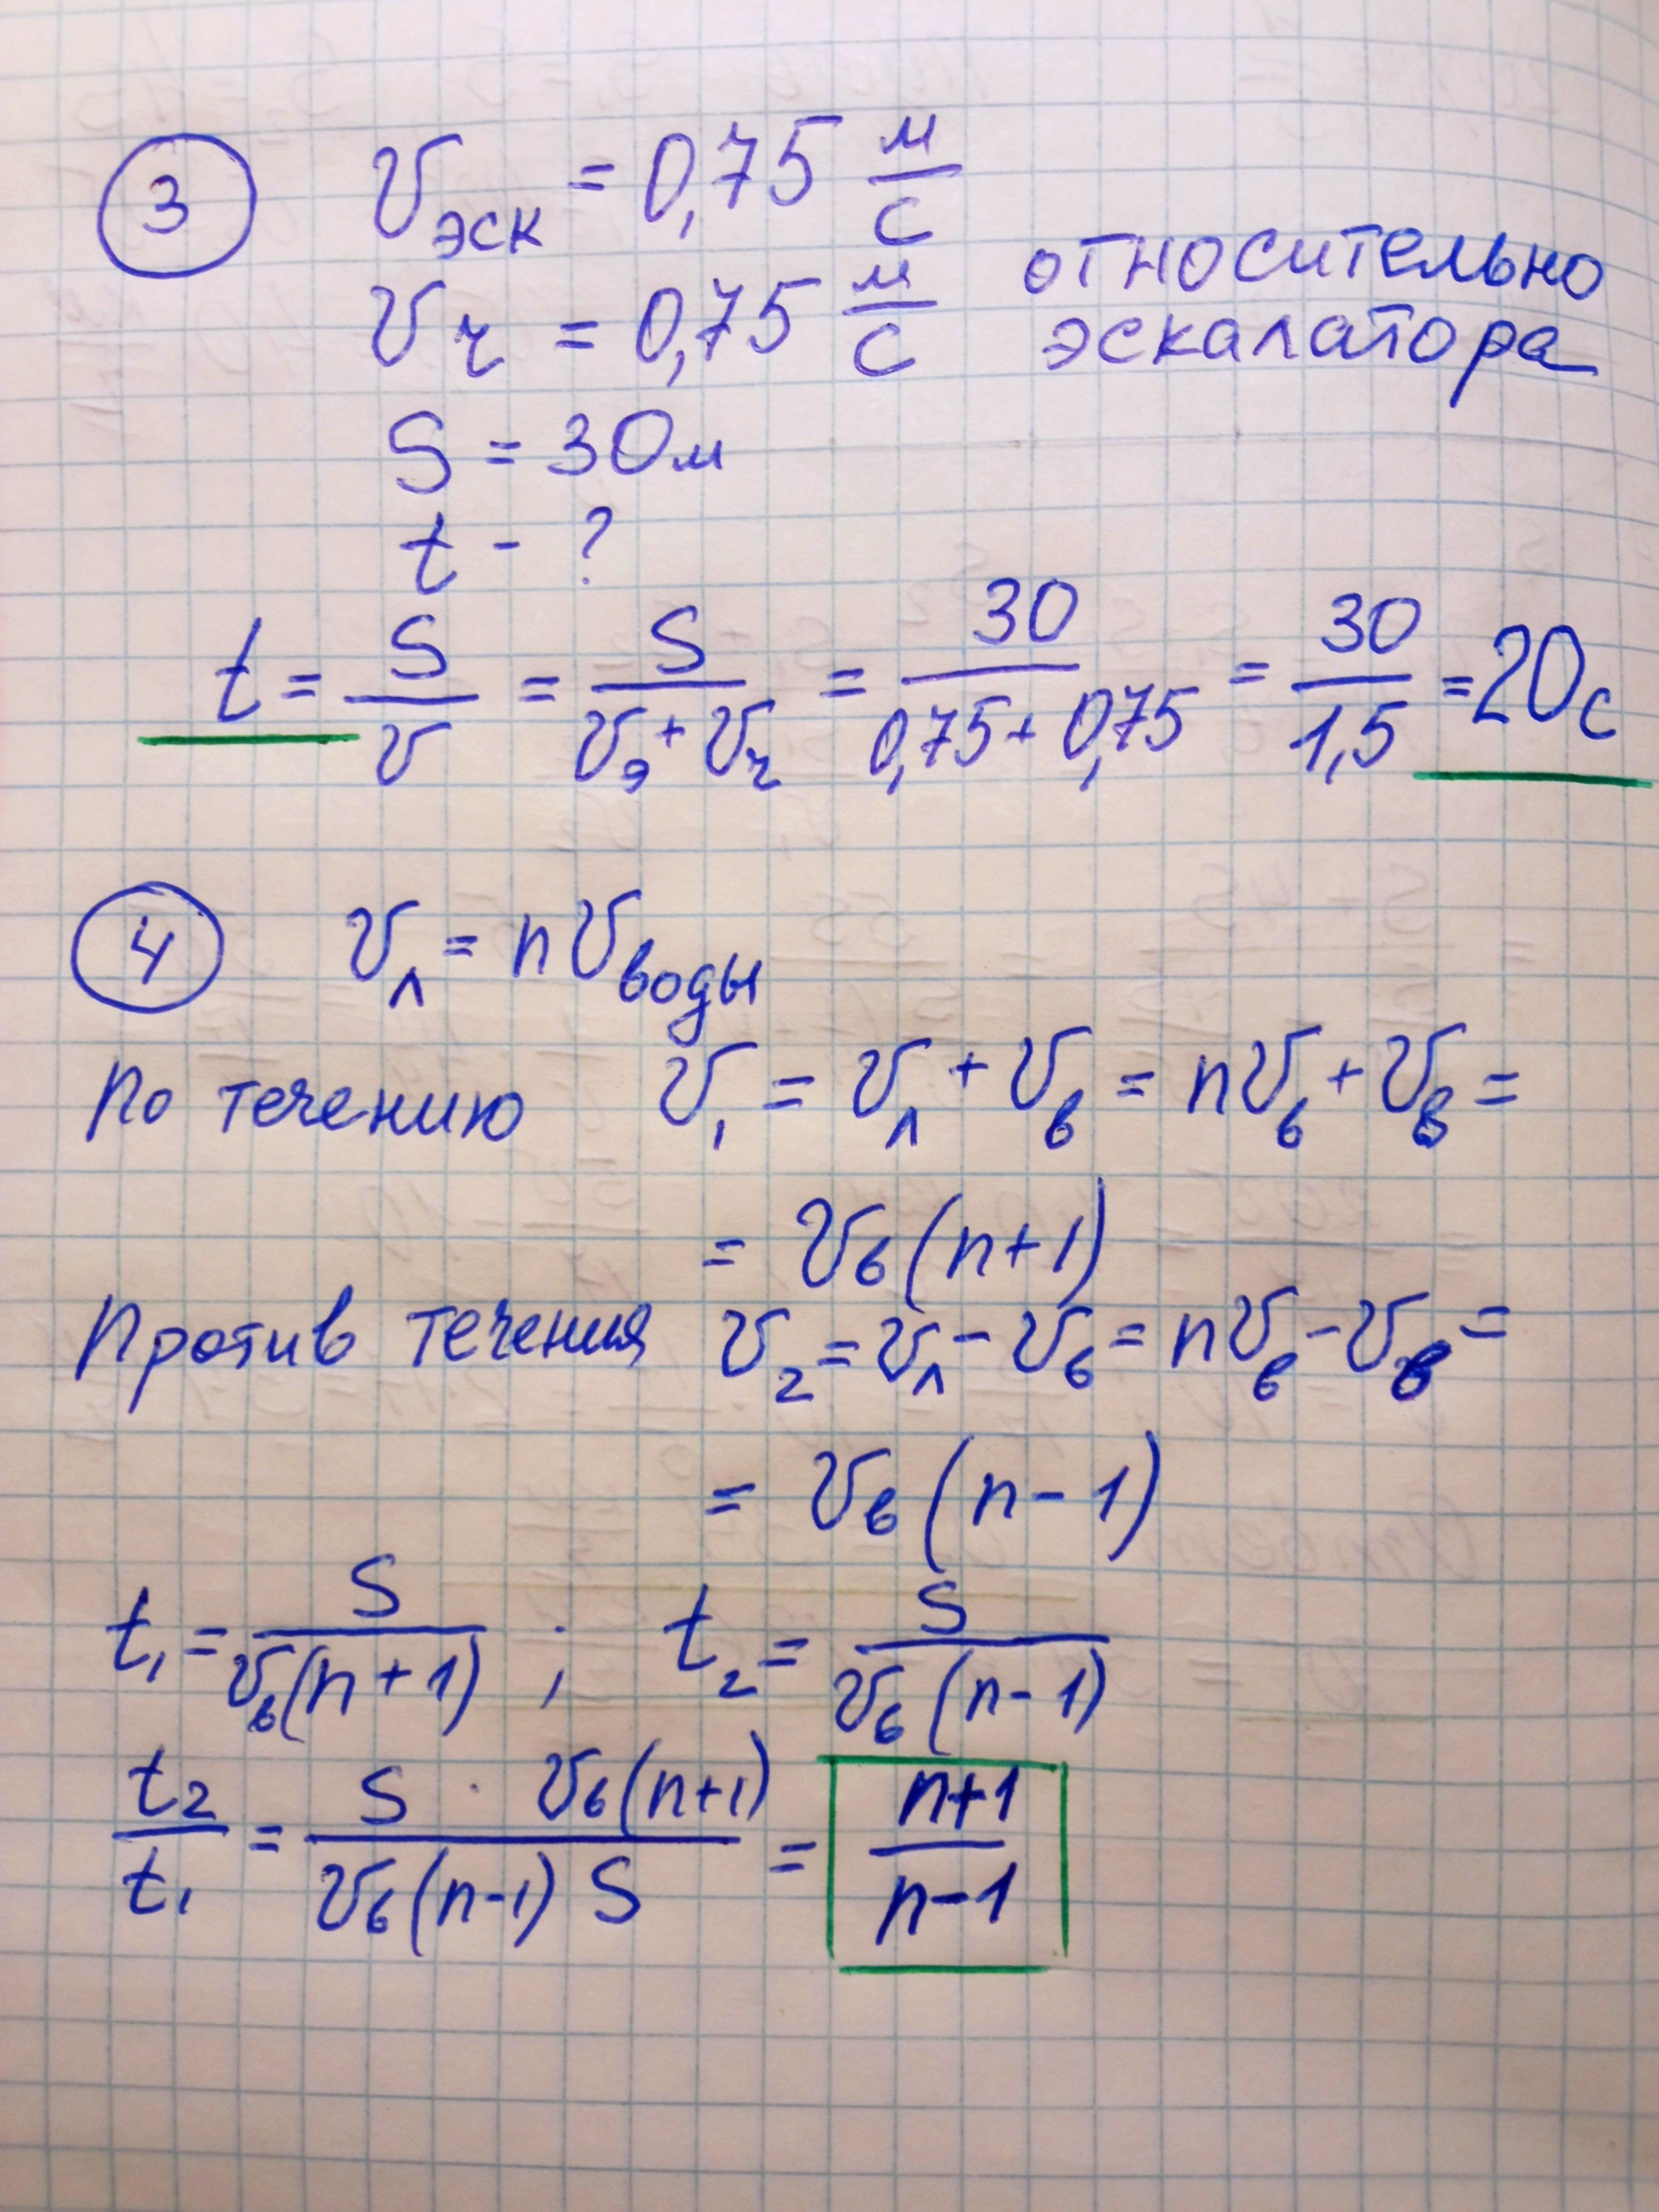 3 υэск = 0,75 м/с
υч = 0,75 м/с относительно эскалатора
S = 30м
t - ?
t = S/υ = S/(υэ + υч) = 30/(0,75 + 0,75) = 30/1,5 = 20с
4 υл = nυводы
По течению υ₁ = υл + υв = nυв + υв =
= υв(n+1)
Против течения υ₂ = υл - υв = nυв - υв =
= υв(n-1)
t₁ = S/(υв(n+1)) ; t₂ = S/(υв(n-1))
t₂/t₁ = (S · υв(n+1))/(υв(n-1) S) = (n+1)/(n-1)